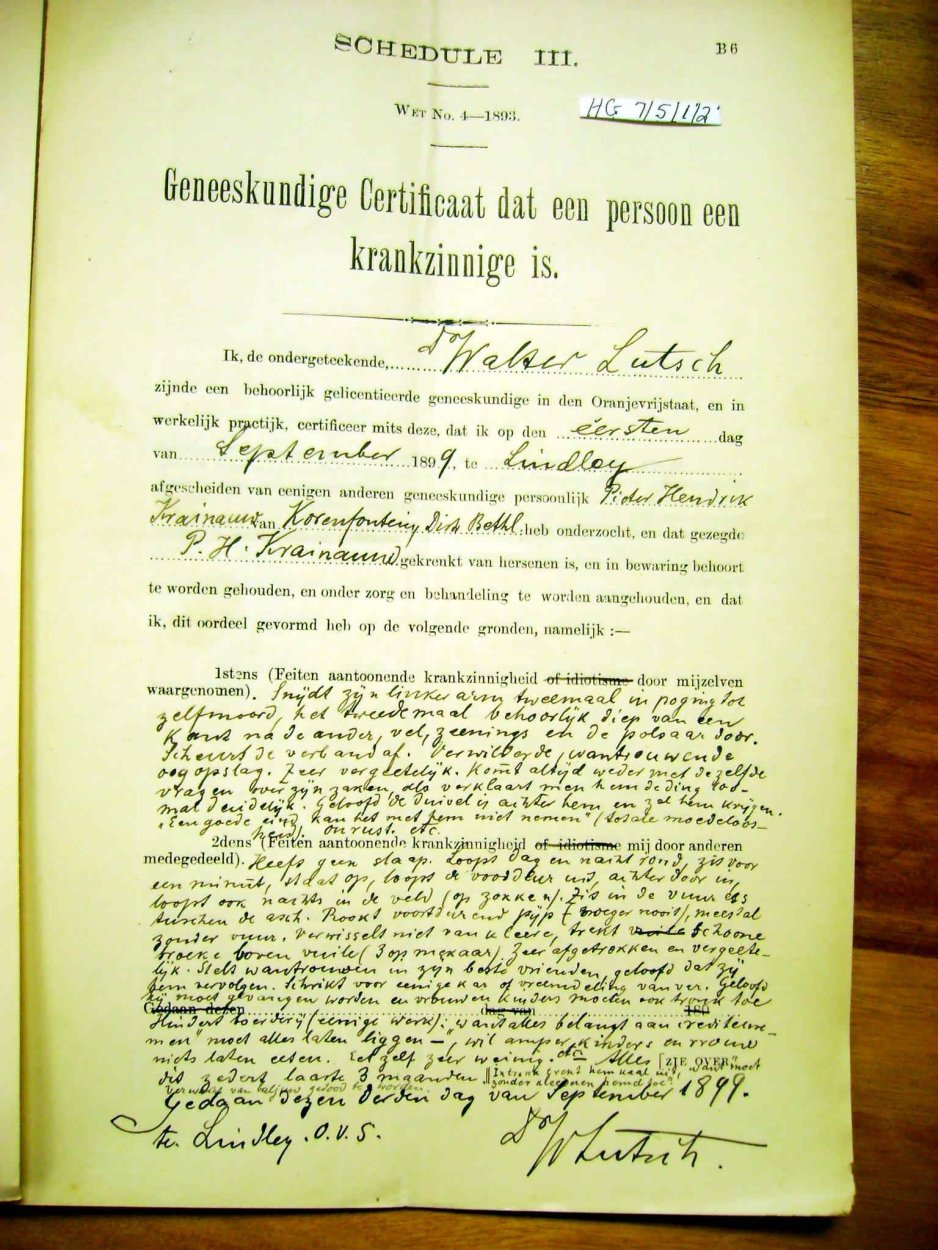 SCHEDULE III.
B 6
WET No. 4—1893.
HG 7/5/1/2
Geneeskundige Certificaat dat een persoon een
krankzinnige is.
Ik, de ondergeteekende, Dr Walter Lutsch
zijnde een behoorlijk gelicentieerde geneeskundige in den Oranjevrijstaat, en in
werkelijk practijk, certificeer mits deze, dat ik op den eersten dag
van September 1899, te Lindley
afgescheiden van eenigen anderen geneeskundige persoonlijk Pieter Hendrik
van Korenfontein, Distr. Bethl. heb onderzocht, en dat gezegde
P. H. gekrenkt van hersenen is, en in bewaring behoort
te worden gehouden, en onder zorg en behandeling te worden aangehouden, en dat
ik, dit oordeel gevormd heb op de volgende gronden, namelijk :—
1stens (Feiten aantoonende krankzinnigheid of idiotisme door mijzelven
waargenomen). Snijdt zijn linker arm tweemaal in poging tot
zelfmoord, het tweede maal behoorlijk diep van een
kant na de ander, vel, zeenings en de polsaar door.
Scheurt de verband af. Verwilderde, wantrouwende
oogopslag. Zeer vergeetelijk. Komt altijd weder met dezelfde
vragen over zijn zaken, als verklaart men hem de ding
duidelijk. Geloofd de duivel is achter hem en zal hem krijgen.
"Een goede eind kan het met hem niet nemen" (totale moedeloos-
heid). onrust. etc.
2dens (Feiten aantoonende krankzinnigheid of idiotisme mij door anderen
medegedeeld). Heeft geen slaap. Loopt dag en nacht rond, zit voor
een minut, staat op, loopt de voordeur uit, achter door in,
loopt ook nachts in de veld (op zokken). Zit in de vuur
tuschen de asch. Rookt voortdurend pijp (vroeger nooit), meestal
zonder vuur. Verwisselt niet van kleere, trekt vuile schoone
broeke boven vuile (3 op mekaar). Zeer afgetrokken en vergeete-
lijk. Stelt wantrouwen in zijn beste vrienden, geloofd dat zij
hem vervolgen. Schrikt voor eenige kar of vreemdeling van ver. Geloofd
hij moet gevangen worden en vrouw en kinders moeten ook tronk toe
Gedaan dezen dag van 189
Hindert boerderij (eenige werk): "want alles belangt aan crediteure-
men" moet alles laten liggen —, wil amper kinders en vrouw
niets laten eeten. Eet zelf zeer weinig. etc. Alles [ZIE OVER
dit zedert laaste 3 maanden
Gedaan dezen derden dag van September 1899.
te Lindley. O.V.S.
Dr W Lutsch.